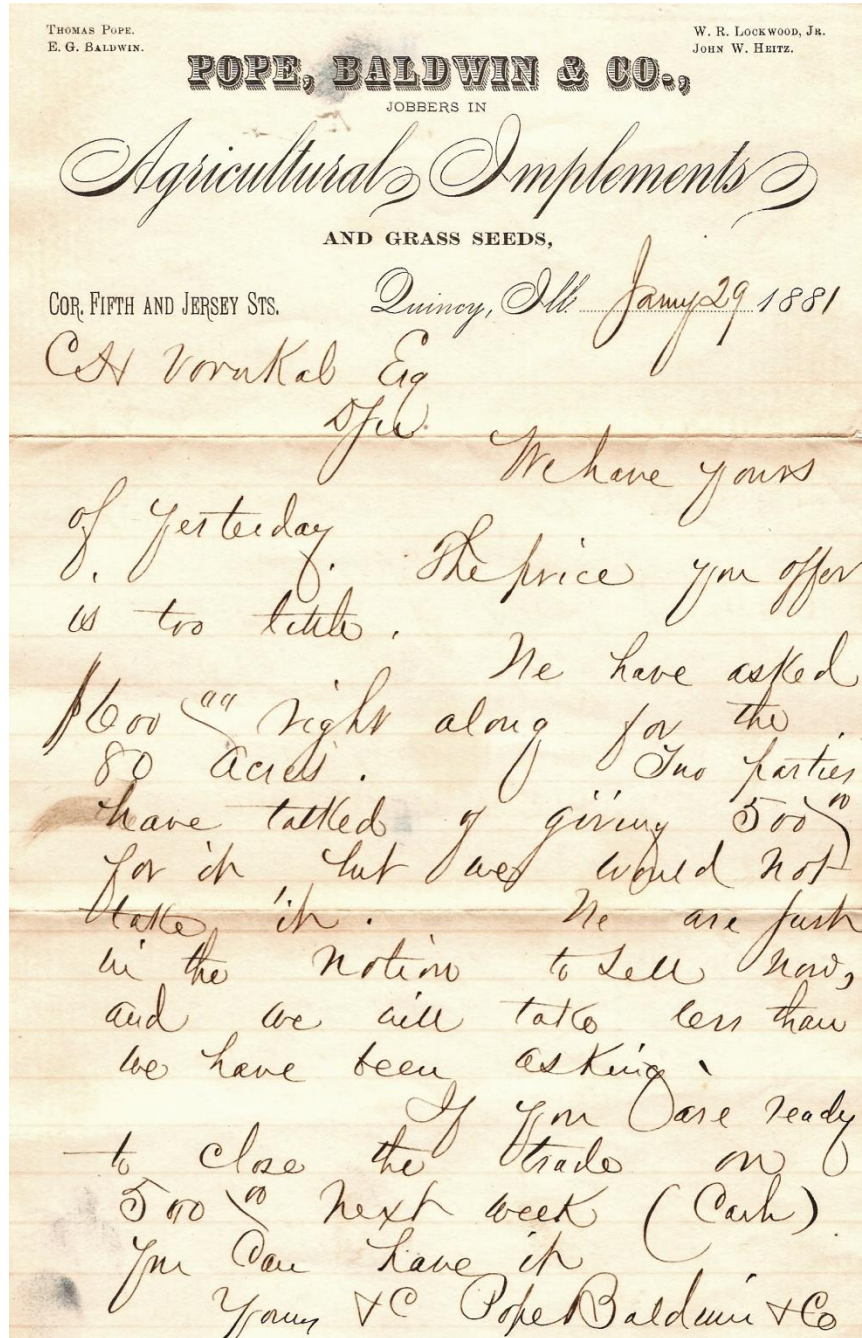 THOMAS POPE.
E. G. BALDWIN.
W. R. LOCKWOOD, JR.
JOHN W. HEITZ.
POPE, BALDWIN & CO.,
JOBBERS IN
Agricultural Implements
AND GRASS SEEDS,
COR. FIFTH AND JERSEY STS.
Quincy, Ill. Jany 29 1881
C H Esq
We have yours
of yesterday.
The price you offer
is too little.
We have asked
$600 00 right along for the
80 acres. Two parties
have talked of giving 500 00
for it but we would not
take it. We are just
in the notion to sell now,
and we will take less than
we have been asking.
If you are ready
to close the trade on
500 00 next week (Cash)
you can have it
Yours &C Pope Baldwin & Co